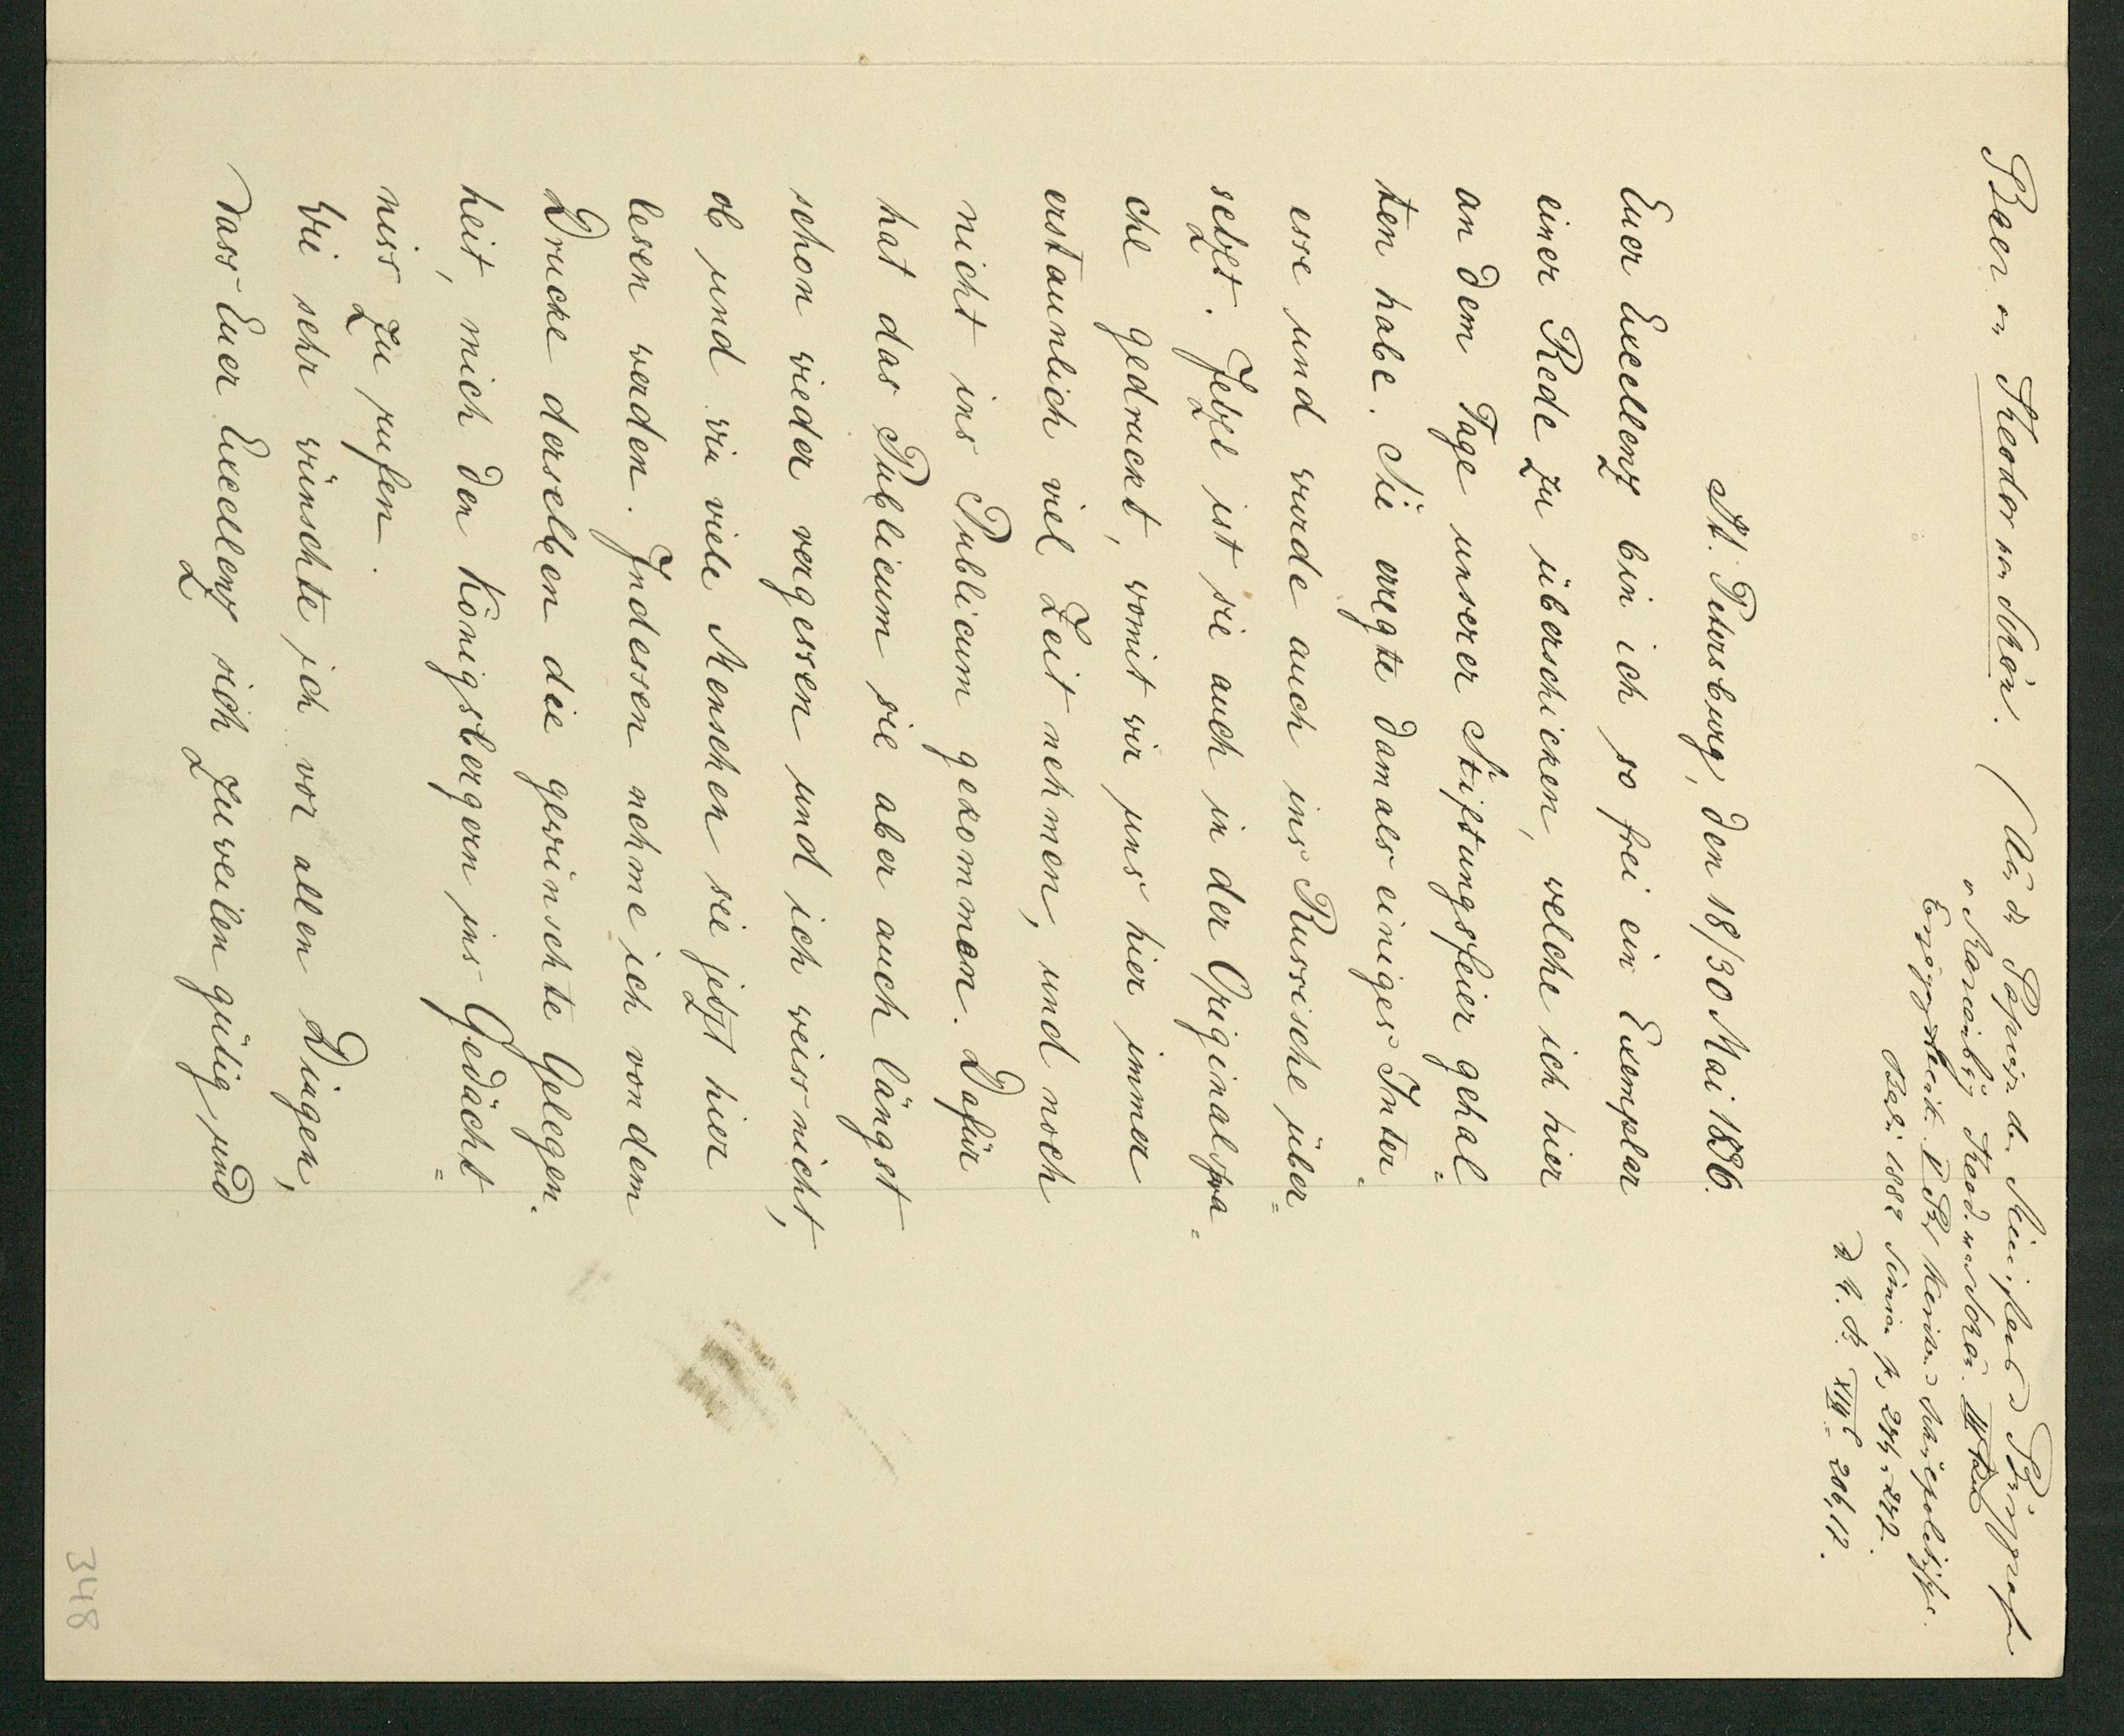 Baer an Theodor von Schön. (Aus den Papieren des Ministers u Burggrafen
v Marienburg Theod. von Schön.
Berlin 1882 Simion p. 274-277.
St. Petersburg, den 18/30 Mai 1836.
Euer Excellenz bin ich so frei ein Exemplar
einer Rede zu überschicken, welche ich hier
an dem Tage unserer Stiftungsfeier gehal=
ten habe. Sie erregte damals einiges Inter=
esse und wurde auch ins Russische über=
setzt. Jetzt ist sie auch in der Originalspra=
che gedruckt, womit wir uns hier immer
erstaunlich viel Zeit nehmen, und noch
nicht ins Publicum gekommen. Dafür
hat das Publicum sie aber auch längst
schon wieder vergessen und ich weiss nicht,
ob und wie viele Menschen sie jetzt hier
lesen werden. Indessen nehme ich von dem
Drucke derselben die gewünschte Gelegen=
heit, mich den Königsbergern ins Gedächt=
niss zu rufen.
Wie sehr wünschte ich vor allen Dingen,
dass Euer Excellenz sich zuweilen gütig und
348